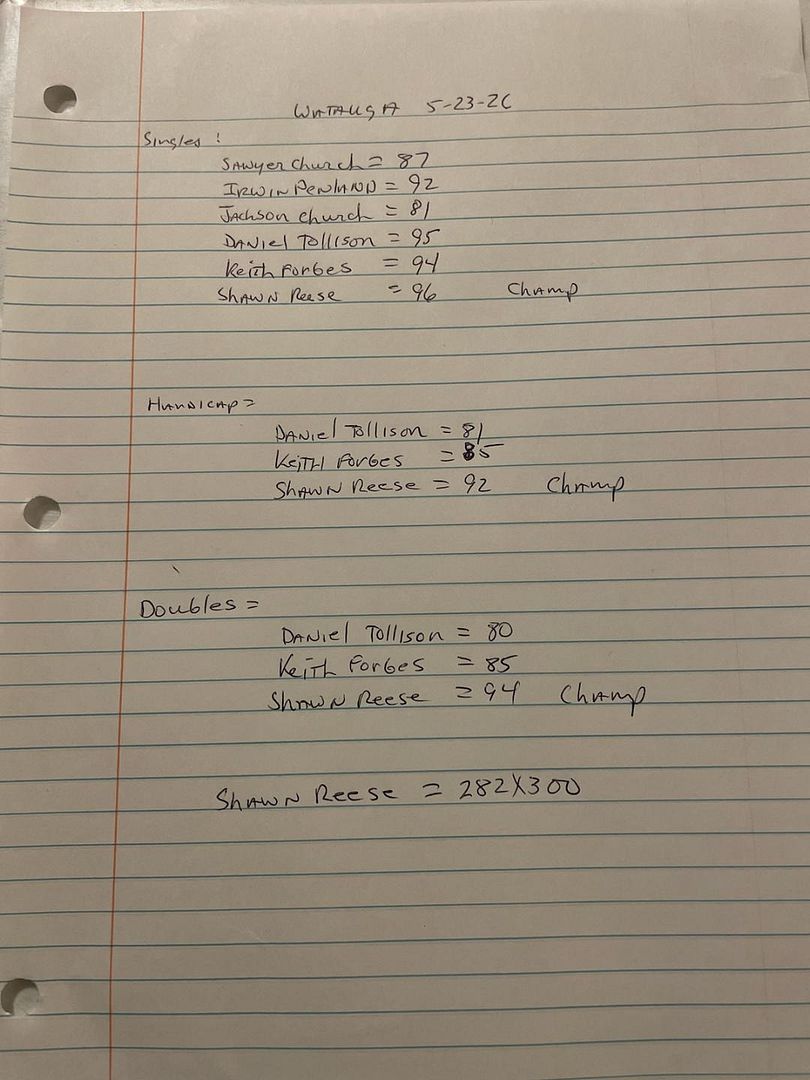 WATAUGA 5-23-26
Singles :
SAWyer Church = 87
IRWIN PENLAND = 92
JAckson church = 81
DANiel Tollison = 95
Keith Forbes = 94
SHAWN Reese = 96 Champ
HANDICAP =
DANiel Tollison = 81
KeITH Forbes = 85
SHAWN Reese = 92 Champ
Doubles =
DANiel Tollison = 80
KeiTh Forbes = 85
SHAWN Reese = 94 Champ
SHAWN Reese = 282X300